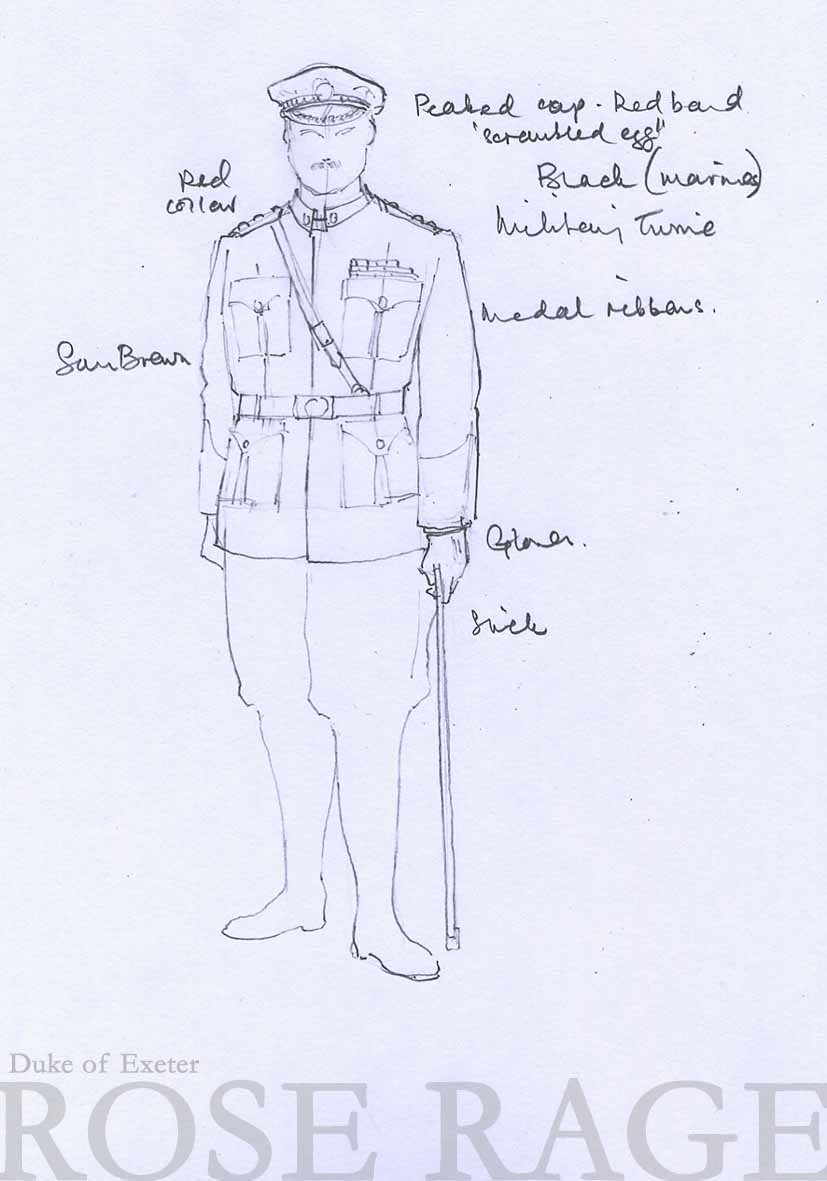 Peaked cap - Red band
"scrambled egg"
Red
collar
Black (marines)
Military Tunic
Medal ribbons.
Sam Brown
Gloves.
Stick
Duke of Exeter
ROSE RAGE